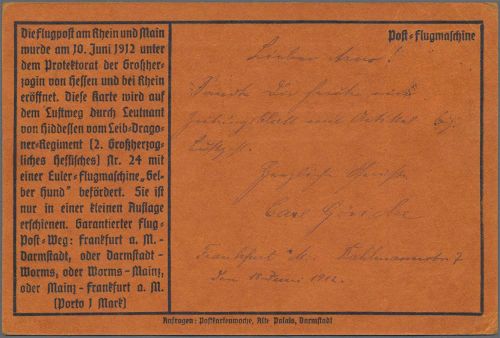 Die Flugpost am Rhein und Main
wurde am 10. Juni 1912 unter
dem Protektorat der Großher-
zogin von Hessen und bei Rhein
eröffnet. Diese Karte wird auf
dem Luftweg durch Leutnant
von Hiddessen vom Leib-Drago-
ner-Regiment (2. Großherzog-
liches Hessisches) Nr. 24 mit
einer Euler-Flugmaschine „Gel-
ber Hund" befördert. Sie ist
nur in einer kleinen Auflage
erschienen. Garantierter Flug-
Post-Weg: Frankfurt a. M.-
Darmstadt, oder Darmstadt-
Worms, oder Worms-Mainz,
oder Mainz-Frankfurt a. M.
(Porto 1 Mark)
Post-Flugmaschine
Lieber Arno!
Sandte Dir heute
Zeitungsblatt mit Artikel
Herzliche
Carl
Frankfurt a. M. 7
Den 18 Juni 1912.
Anfragen: Postkartenwoche, Alt. Palais, Darmstadt